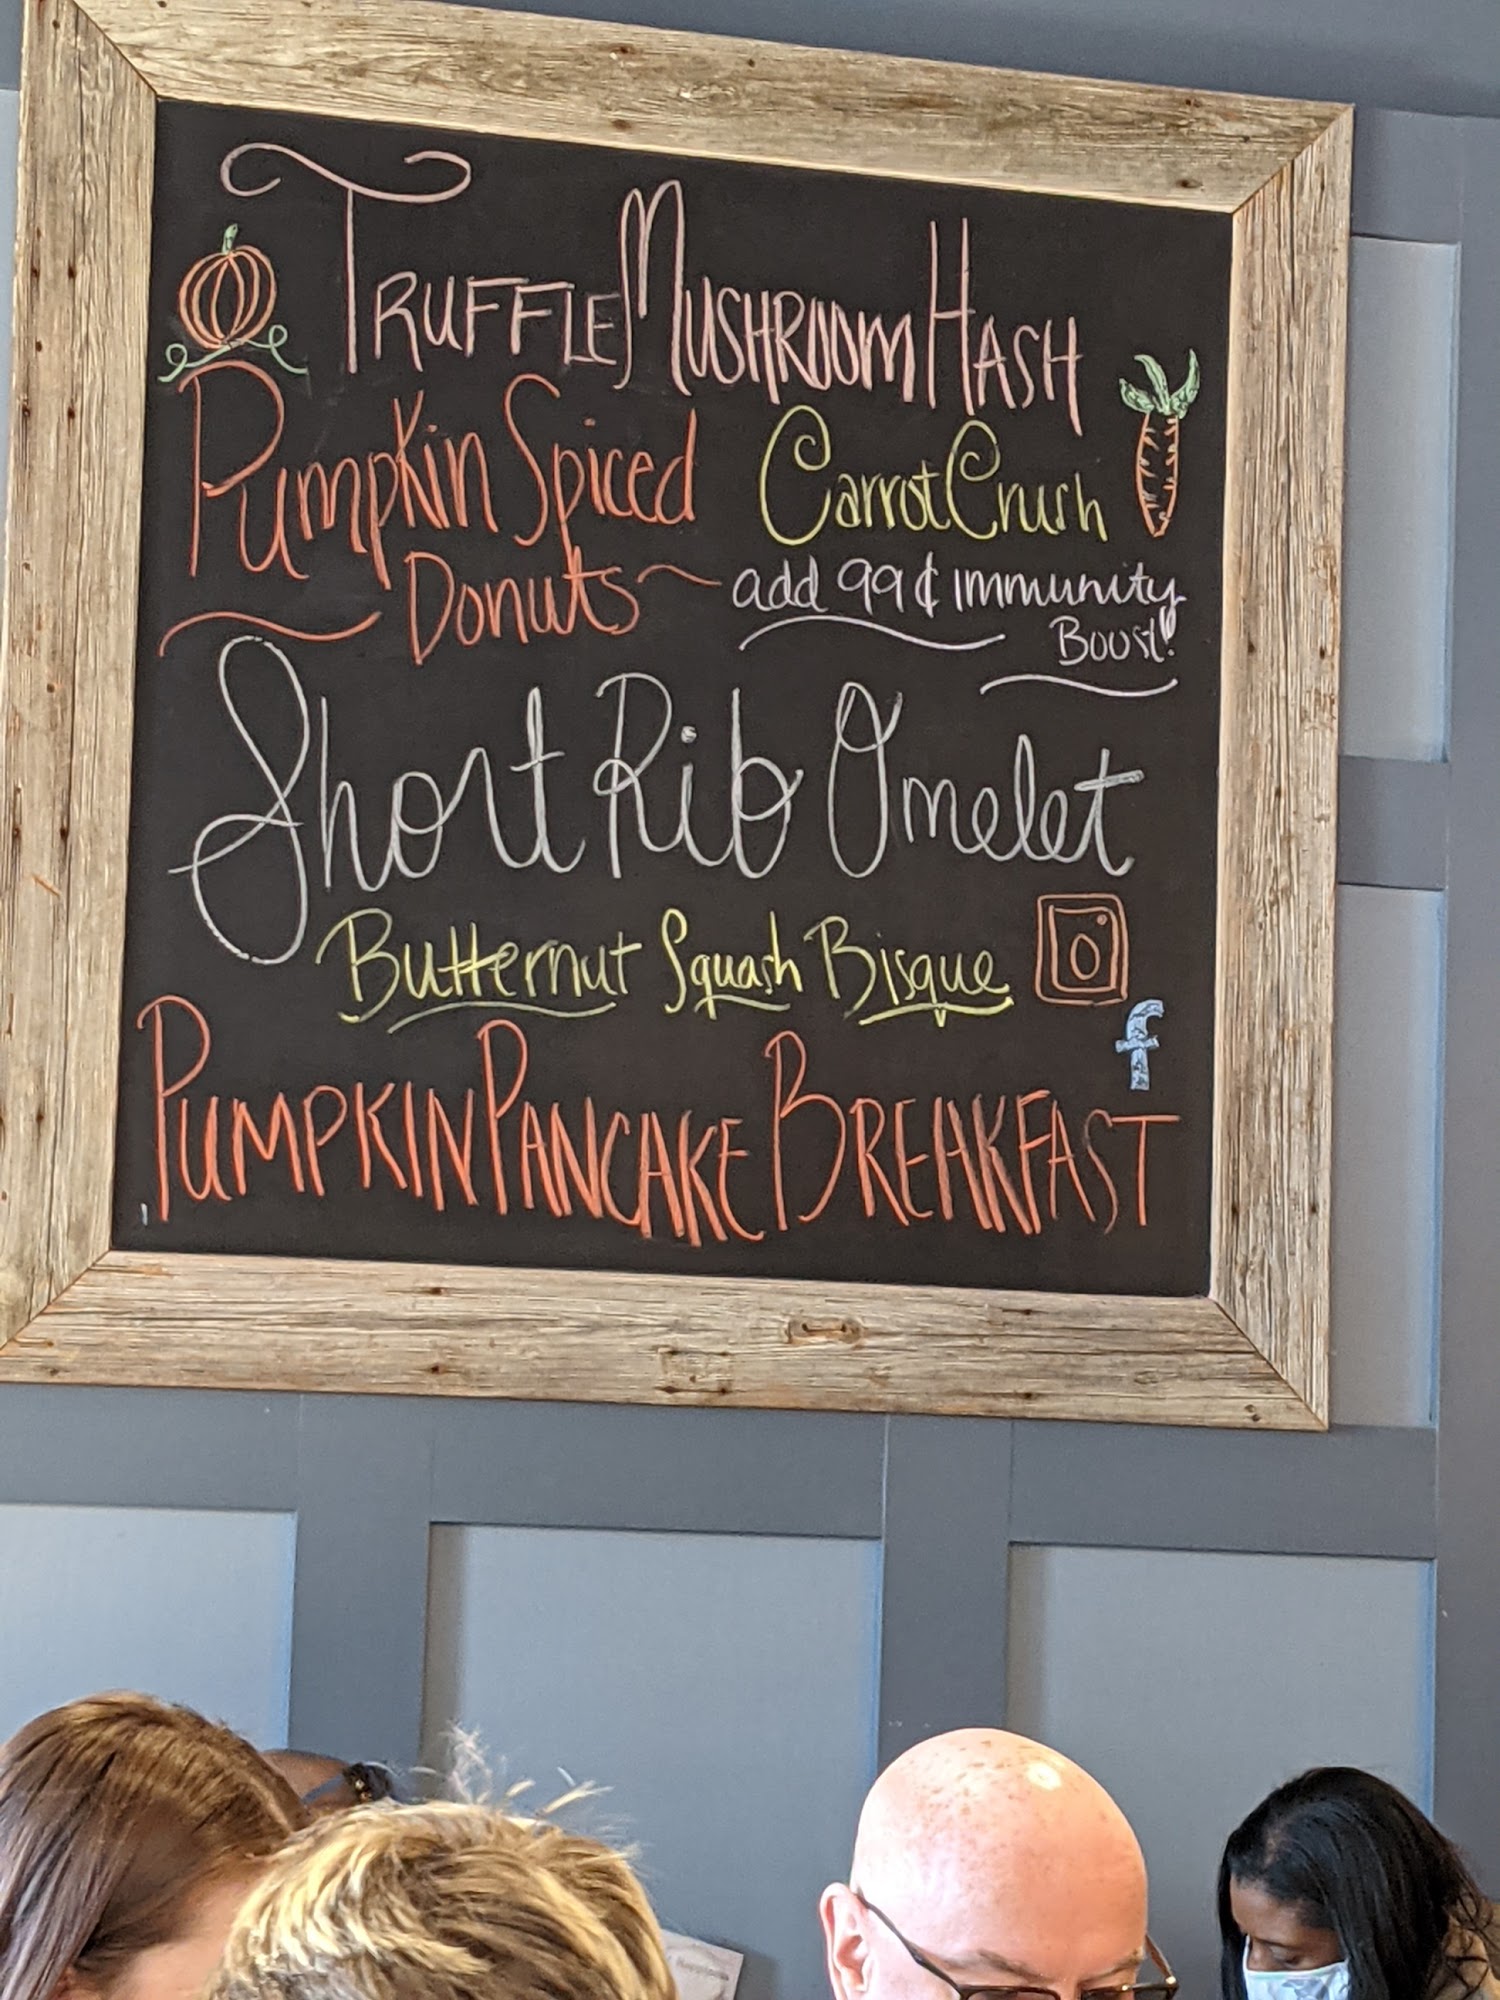 TRUFFLE MUSHROOM HASH
Pumpkin Spiced
Donuts
Carrot Crush
add 99¢ immunity
Boost!
Short Rib Omelet
Butternut Squash Bisque
f
PUMPKIN PANCAKE BREAKFAST